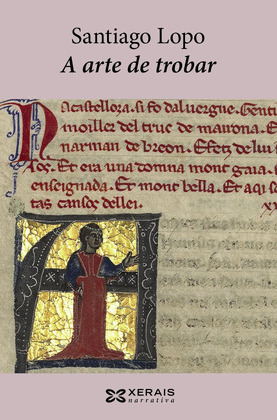 Santiago Lopo
A arte de trobar
Na castelloza. si fo daluergne. Gentil
moiller del truc de mairona. E
narman de breon. E fetz de lui
Et era una domna mout gaia.
enseignada. Et mout bella. Et aqi
tas cansos de lei.
XERAIS
narrativa